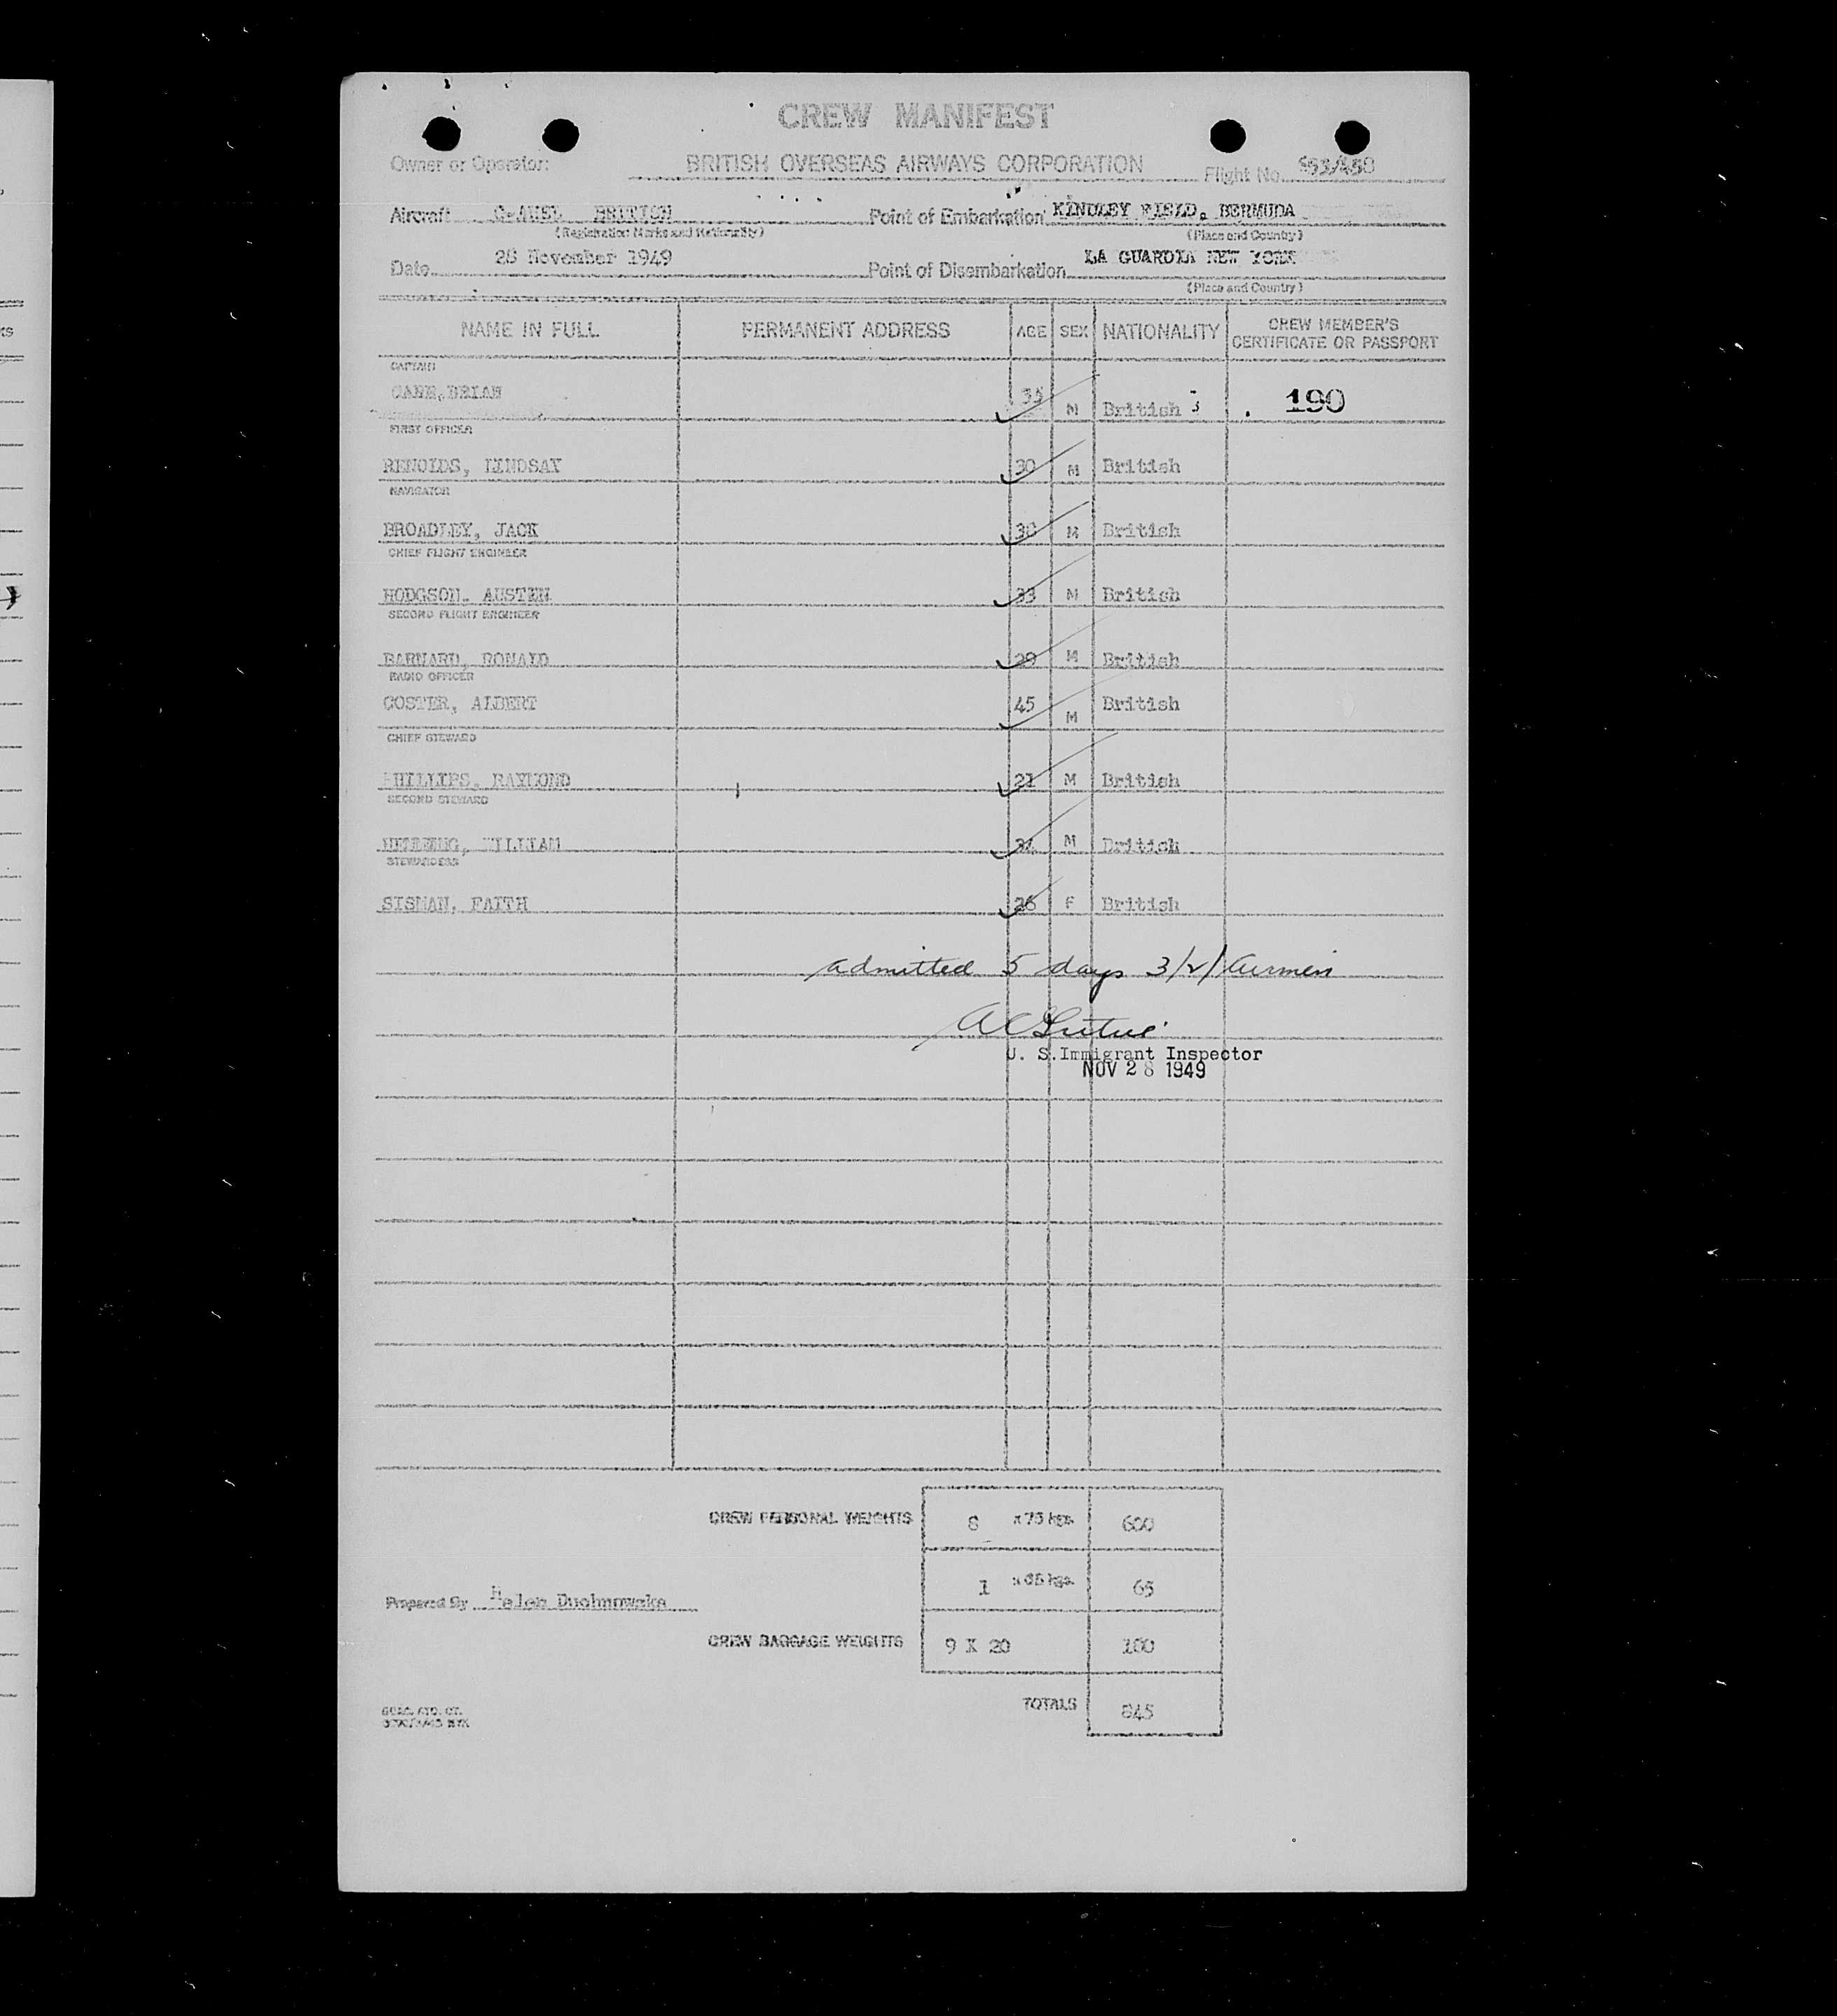 CREW MANIFEST
Owner or Operator: BRITISH OVERSEAS AIRWAYS CORPORATION Flight No.
Aircraft BRITISH Point of Embarkation KINDLEY FIELD, BERMUDA
(Registration Marks and Nationality) (Place and Country)
Date 28 November 1949 Point of Disembarkation LA GUARDIA NEW YORK
(Place and Country)
NAME IN FULL PERMANENT ADDRESS AGE SEX NATIONALITY CREW MEMBER'S CERTIFICATE OR PASSPORT
CAPTAIN
BRIAN 35 M British 190
FIRST OFFICER
RENOLDS, LINDSAY 30 M British
NAVIGATOR
BROADLEY, JACK 30 M British
CHIEF FLIGHT ENGINEER
HODGSON. AUSTEN 33 M British
SECOND FLIGHT ENGINEER
BARNARD, RONALD 29 M British
RADIO OFFICER
COSTER, ALBERT 45 M British
CHIEF STEWARD
PHILLIPS, RAYMOND 21 M British
SECOND STEWARD
WILLIAM M British
STEWARDESS
SISMAN, FAITH 26 F British
admitted 5 days 3/2/ Airmen
U. S. Immigrant Inspector
NOV 28 1949
CREW PERSONAL WEIGHTS 8 x 75 kgs. 600
1 x 65 kgs. 65
Prepared By Helen
CREW BAGGAGE WEIGHTS 9 X 20 180
TOTALS 845